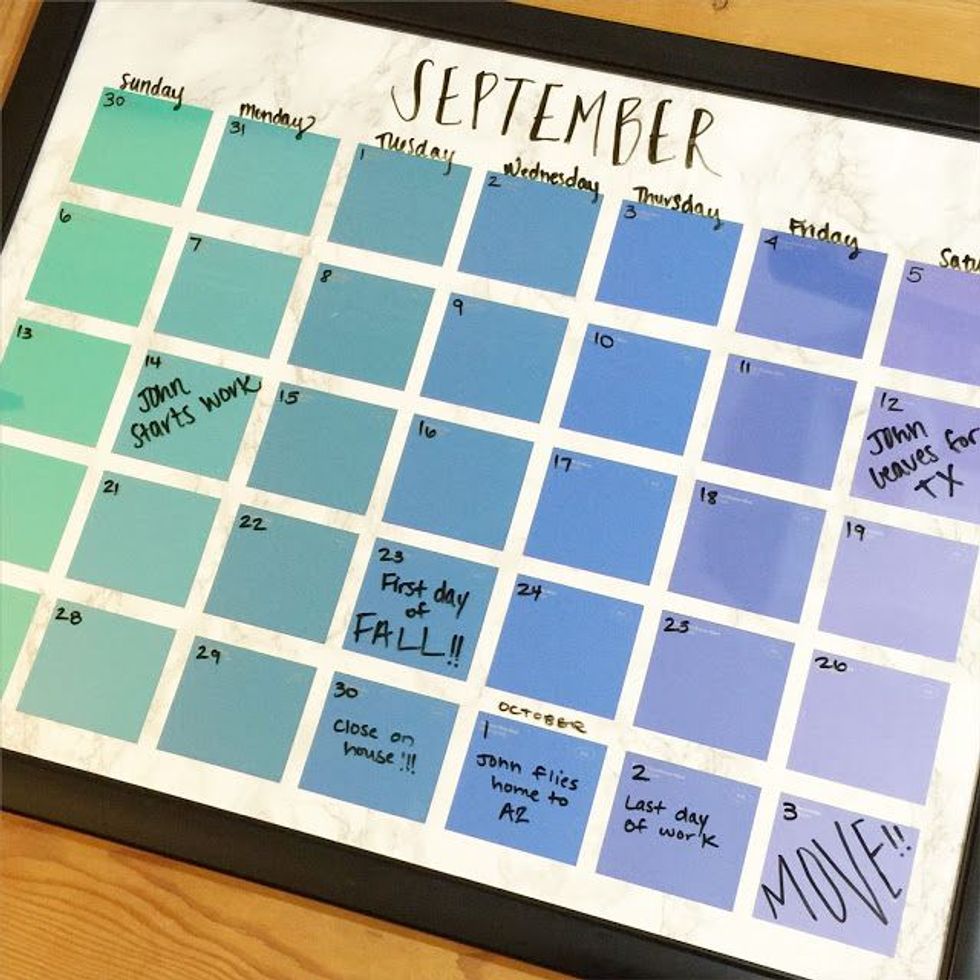 SEPTEMBER
Sunday
Monday
Tuesday
Wednesday
Thursday
Friday
Satu
30
31
1
2
3
4
5
6
7
8
9
10
11
12
John
leaves for
TX
13
14
John
starts work
15
16
17
18
19
21
22
23
First day
of
FALL!!
24
25
26
28
29
30
Close on
house!!!
OCTOBER
1
John flies
home to
AZ
2
Last day
of work
3
MOVE!!